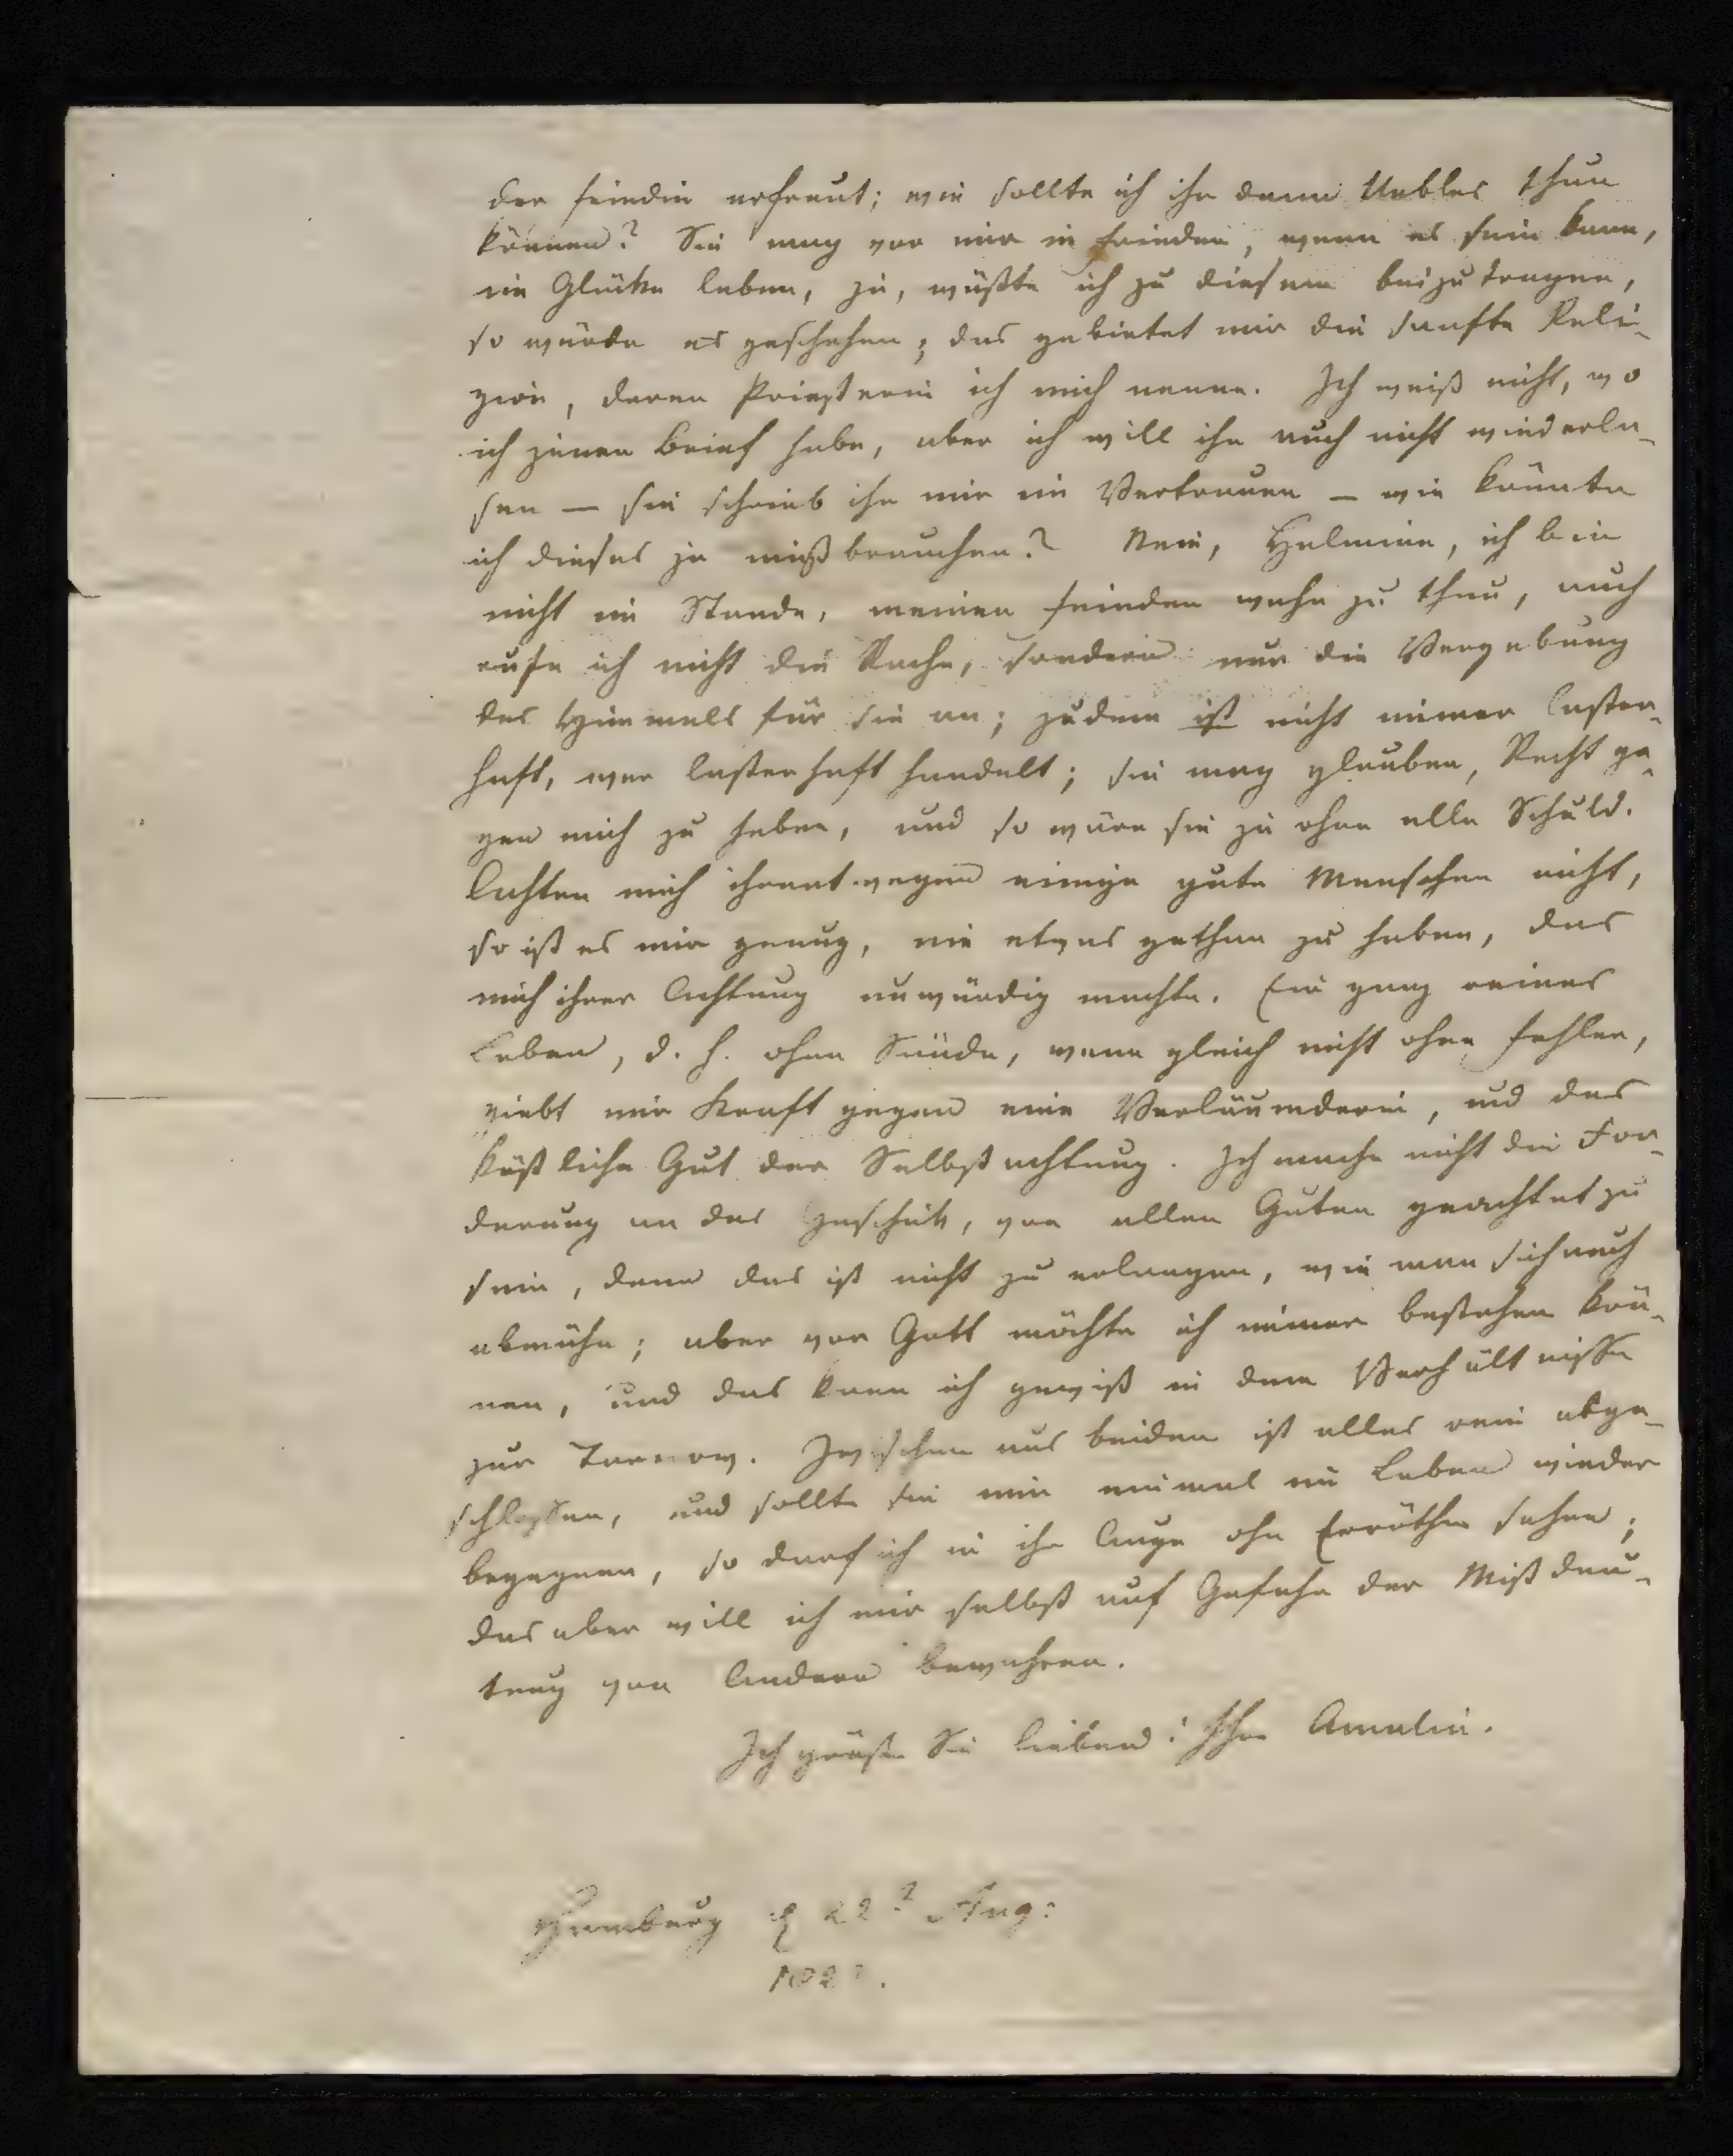 der Feindin erfreut; wie sollte ich ihr denn Uebles thun
können? Sie mag vor mir in Frieden, wenn es sein kann,
im Glücke leben, ja, wüßte ich zu diesem beizutragen,
so würde es geschehen; das gebietet mir die sanfte Reli-
gion, deren Priesterin ich mich nenne. Ich weiß nicht, wo
ich jenen Brief habe, aber ich will ihn auch nicht wiederle-
sen — sie schrieb ihn mir im Vertrauen — wie könnte
ich dieses je mißbrauchen? Nein, Helmine, ich bin
nicht im Stande, meinen Feinden wehe zu thun, auch
rufe ich nicht die Rache, sondern nur die Vergebung
des Himmels für sie an; zudem ist nicht immer laster-
haft, wer lasterhaft handelt; sie mag glauben, Recht ge-
gen mich zu haben, und so wäre sie ja ohne alle Schuld.
Achten mich ihrentwegen einige gute Menschen nicht,
so ist es mir genug, nie etwas gethan zu haben, das
mich ihrer Achtung unwürdig machte. Ein ganz reines
Leben, d. h. ohne Sünde, wenn gleich nicht ohne Fehler,
giebt mir Kraft gegen eine Verläumderin, und das
köstliche Gut der Selbstachtung. Ich mache nicht die For-
derung an das Geschick, von allen Guten geachtet zu
sein, denn das ist nicht zu erlangen, wie man sich auch
abmühe; aber vor Gott möchte ich immer bestehen kön-
nen, und das kann ich gewiß in dem Verhältnisse
zur Tarnow. Zwischen uns beiden ist alles rein abge-
schlossen, und sollte sie mir einmal im Leben wieder
begegnen, so darf ich in ihr Auge ohn Erröthen sehen;
das aber will ich mir selbst auf Gefahr der Mißdeu-
tung von Andern bewahren.
Ich grüße Sie liebend! Ihre Amalie.
Hamburg d 22 Aug: